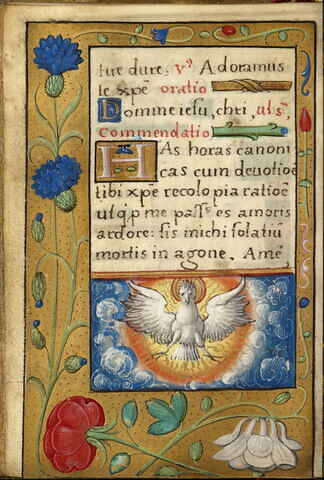 ture dure, v⁹ Adoramus
te xp̄e oratio
Domine iesu, chri, ut s̄.
Commendatio
HAs horas canoni
cas cum deuotiōe
tibi xp̄e recolo pia ratiōe
ut q̄ p me pass⁹ es amoris
ardore: sis michi solatiū
mortis in agone. Amē